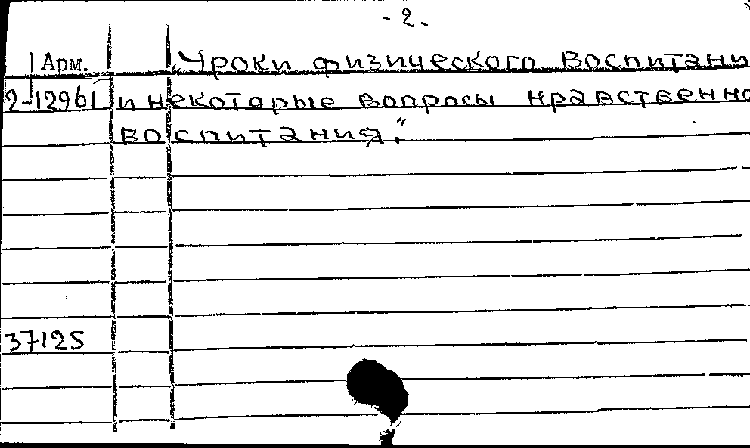 - 2 -
Арм. "Уроки физического воспитани
2-12961 и некоторые вопросы нравственно
воспитания."
37125